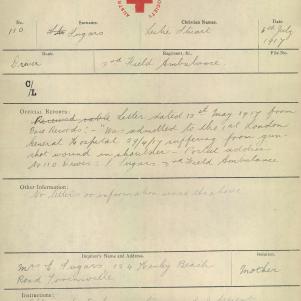 No. Surname. Christian Names. Date.
110 Sugars Leslie Stuart 6th July 1917
Rank. Regiment, &c. File No.
Driver 3rd Field Ambulance
C/L
OFFICIAL REPORTS: Letter dated 12th May 1917 from
Base Records: - Was admitted to the 1st London
General Hospital 29/4/17 suffering from gun-
shot wound in shoulder - Postal address
No 110 Driver L. Sugars 3rd Field Ambulance
Other Information:
No letters or information since the above
Inquirer's Name and Address. Relation.
Mrs E Sugars 124 Beach
Road Townsville Mother
Instructions: